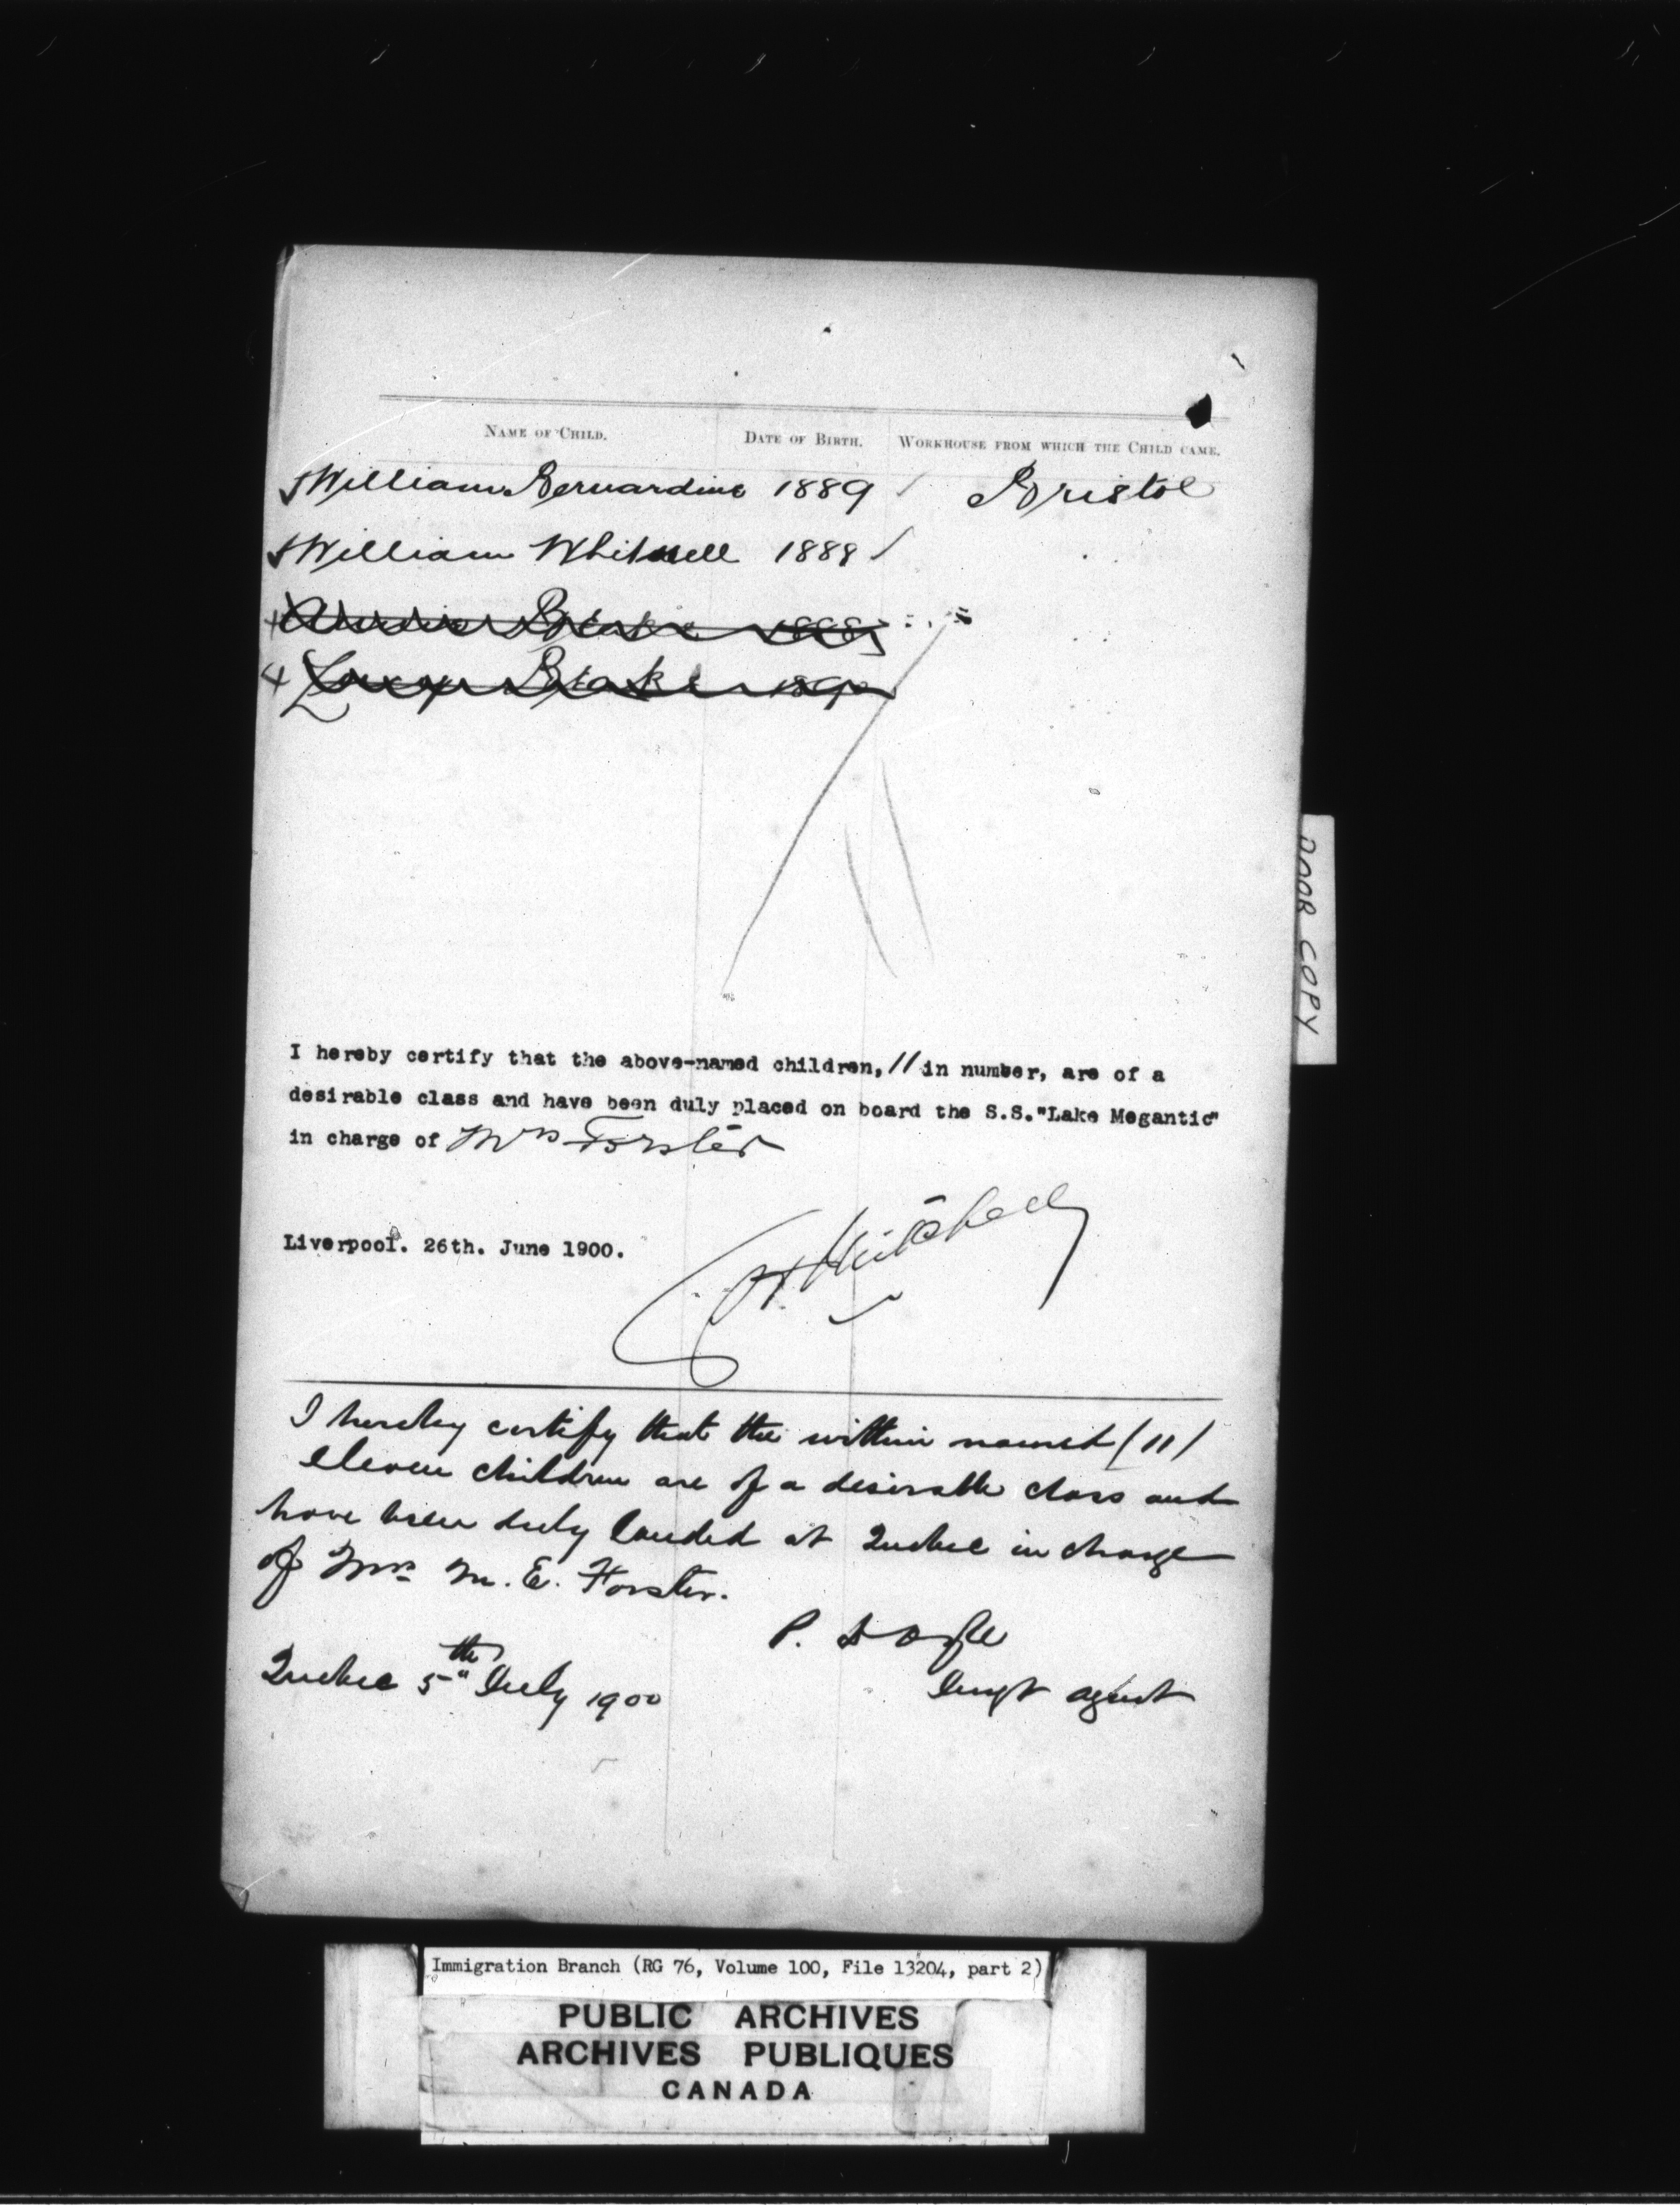 NAME OF CHILD. DATE OF BIRTH. WORKHOUSE FROM WHICH THE CHILD CAME.
William Bernardine 1889 Bristol
William Whitwell 1888
Blake
Lucy Blake 1890
I hereby certify that the above-named children, 11 in number, are of a
desirable class and have been duly placed on board the S.S."Lake Megantic"
in charge of Mrs Forster
Liverpool. 26th. June 1900.
Mitchell
I hereby certify that the within named (11)
eleven children are of a desirable class and
have been duly landed at Quebec in charge
of Mrs M. E. Forster.
P. Doyle
Quebec 5th July 1900
Immgt agent
DOOR COPY
Immigration Branch (RG 76, Volume 100, File 13204, part 2)
PUBLIC ARCHIVES
ARCHIVES PUBLIQUES
CANADA